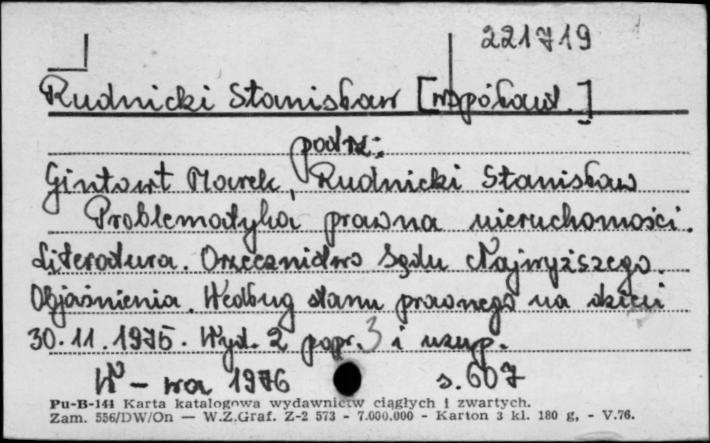 221719
Rudnicki Stanisław [współaut.]
patrz:
Gintowt Marek, Rudnicki Stanisław
Problematyka prawna nieruchomości.
Literatura. Orzecznictwo Sądu Najwyższego.
Objaśnienia. Według stanu prawnego na dzień
30.11.1975. Wyd. 2 popr. 3 i uzup.
W-wa 1976 s. 607
Pu-B-144 Karta katalogowa wydawnictw ciągłych i zwartych.
Zam. 556/DW/On — W.Z.Graf. Z-2 573 - 7.000.000 - Karton 3 kl. 180 g, - V.76.